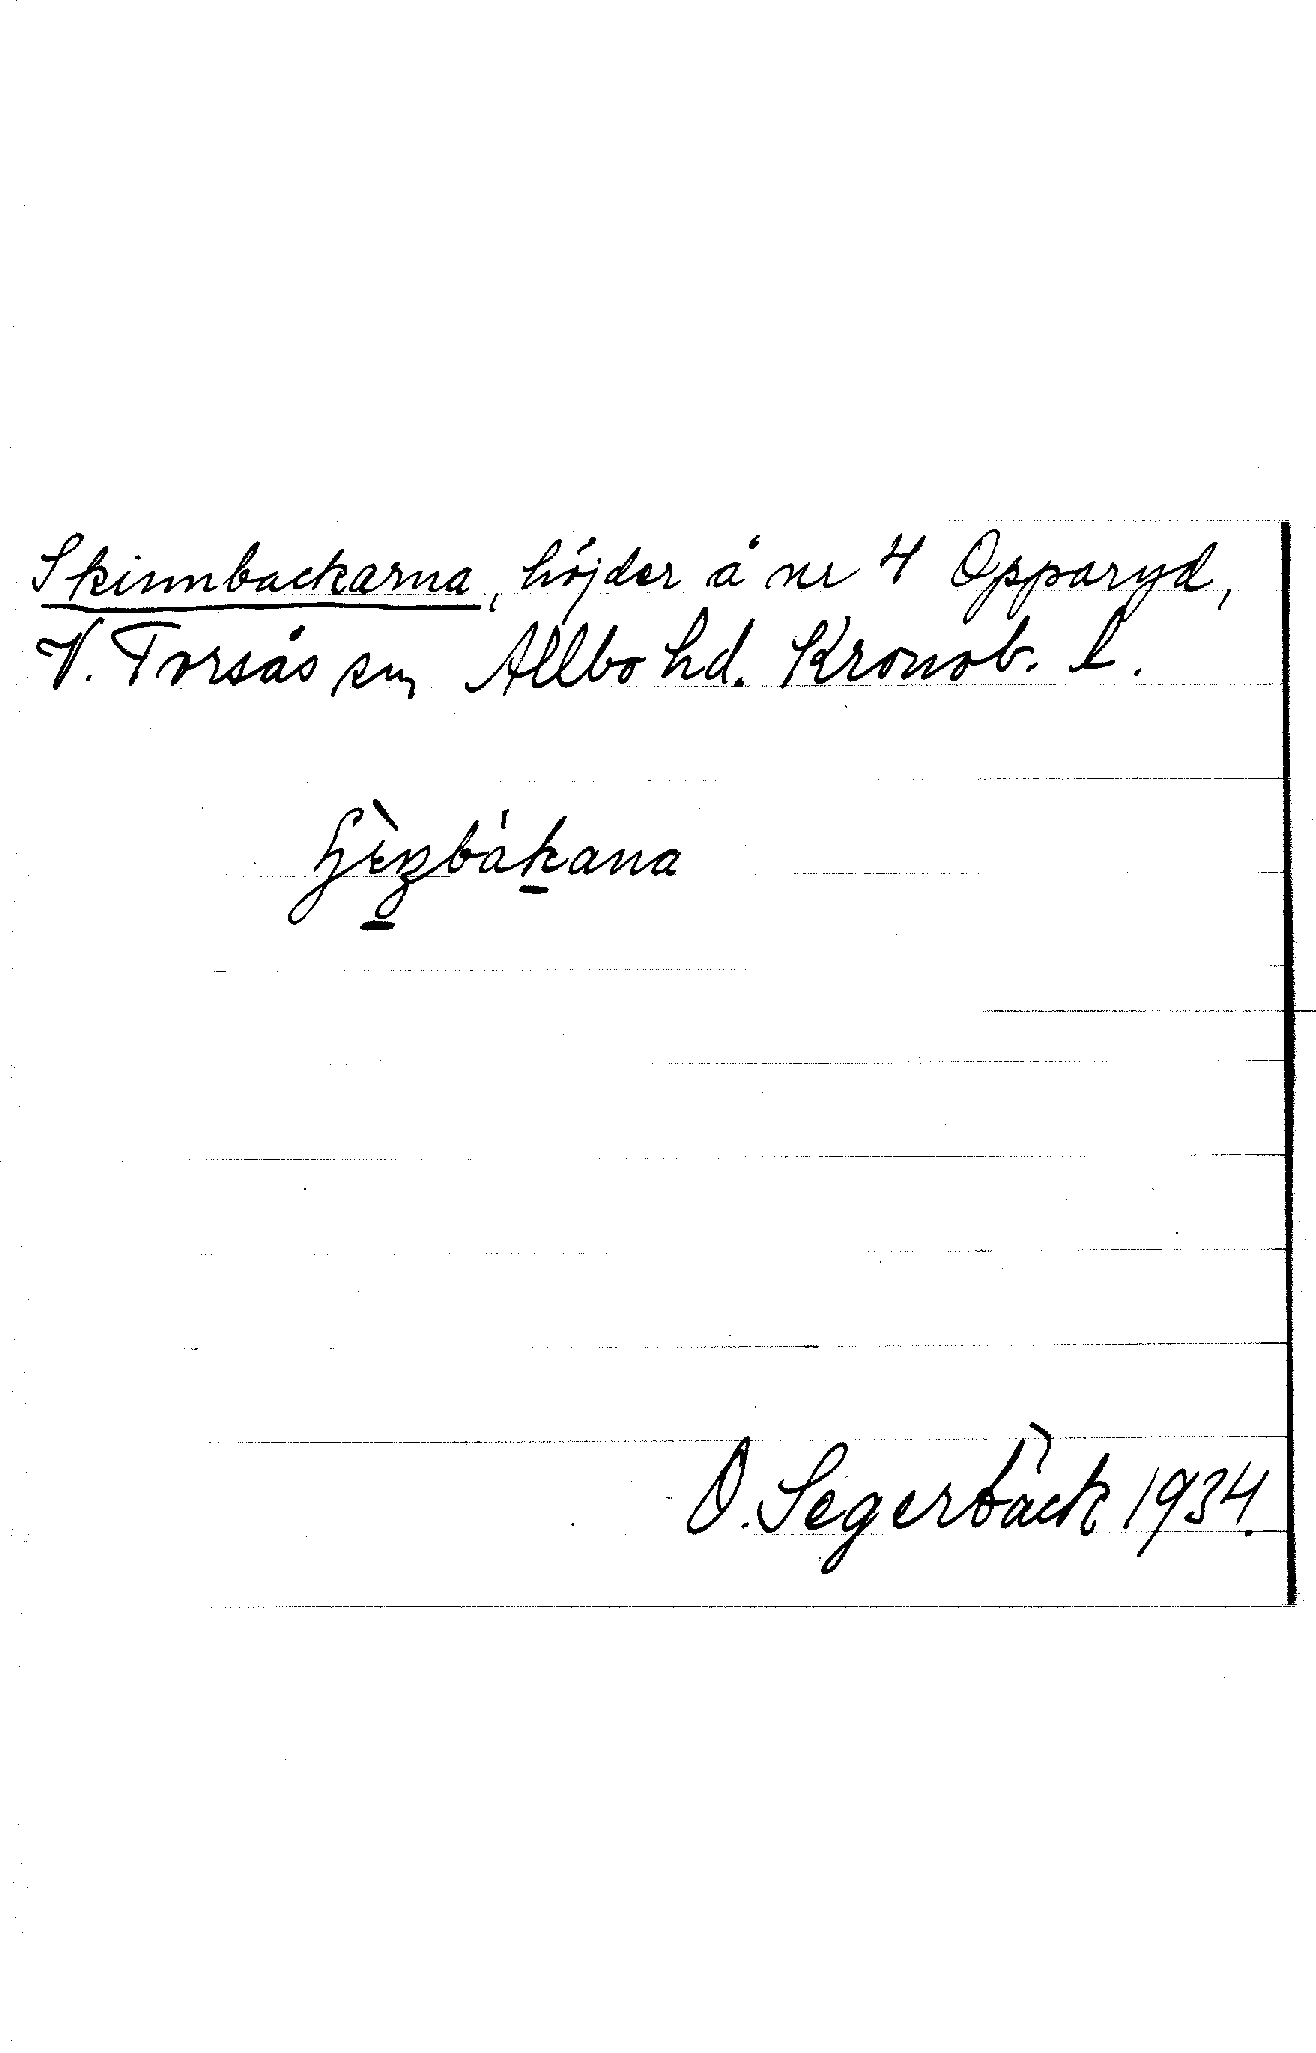 Skinnbackarna, höjder å nr 4 Opparyd,
V. Torsås sn Allbo hd. Kronob. l.
O. Segerbäck 1934.